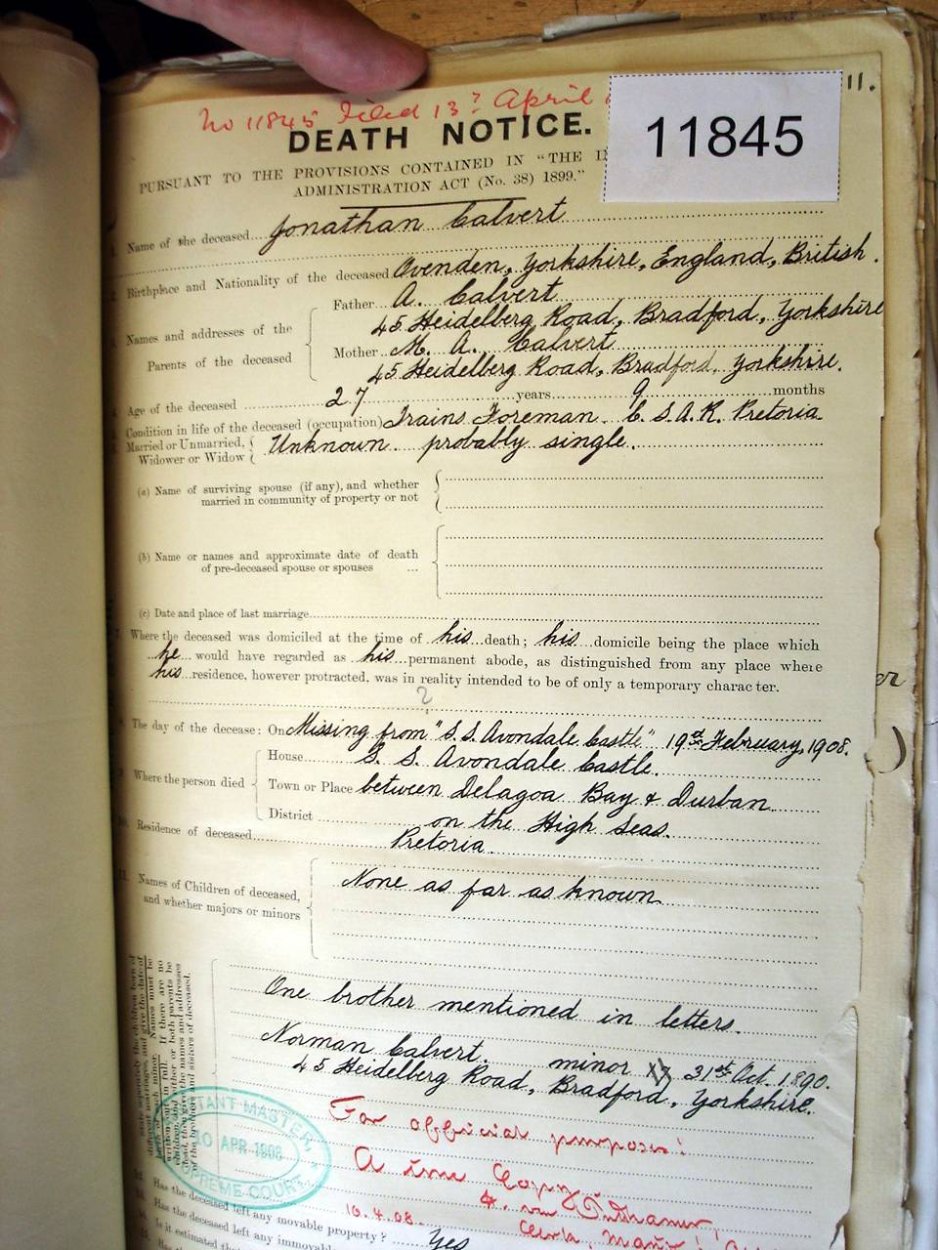 No 11845 Filed 13th April
11.
11845
DEATH NOTICE.
PURSUANT TO THE PROVISIONS CONTAINED IN "THE
ADMINISTRATION ACT (No. 38) 1899."
Name of the deceased Jonathan Calvert
Birthplace and Nationality of the deceased Ovenden, Yorkshire, England, British.
Names and addresses of the Parents of the deceased
Father A. Calvert
45 Heidelberg Road, Bradford, Yorkshire
Mother M. A. Calvert
45 Heidelberg Road, Bradford, Yorkshire.
Age of the deceased 27 years 9 months
Condition in life of the deceased (occupation) Trains Foreman C.S.A.R. Pretoria
Married or Unmarried, Widower or Widow Unknown probably single.
(a) Name of surviving spouse (if any), and whether
married in community of property or not
(b) Name or names and approximate date of death
of pre-deceased spouse or spouses ...
(c) Date and place of last marriage
7. Where the deceased was domiciled at the time of his death; his domicile being the place which
he would have regarded as his permanent abode, as distinguished from any place where
his residence, however protracted, was in reality intended to be of only a temporary character.
?
The day of the decease: On Missing from "S.S. Avondale Castle" 19th February, 1908.
Where the person died
House S. S. Avondale Castle.
Town or Place between Delagoa Bay & Durban
District on the High Seas.
10. Residence of deceased Pretoria.
11. Names of Children of deceased,
and whether majors or minors
None as far as known
One brother mentioned in letters.
Norman Calvert. minor 31st Oct. 1890.
45 Heidelberg Road, Bradford, Yorkshire.
For official purposes!
A true Copy
10.4.08.
Clerk,
ASSISTANT MASTER
10 APR 1908
SUPREME COURT
Has the deceased left any movable property? Yes
Has the deceased left any immovable
Is it estimated that
er